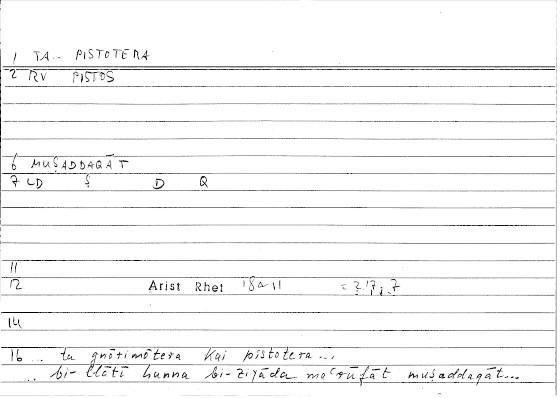 1 TA.. PISTOTERA
2 RV PISTOS
6 MUṢADDAQĀT
7 LD Ṣ D Q
11
12 Arist Rhet 18a11 = 217,7
14
16 .. ta gnōrimōtera kai pistotera...
.. bi-llātī hunna bi-ziyāda maʿrūfāt muṣaddaqāt...